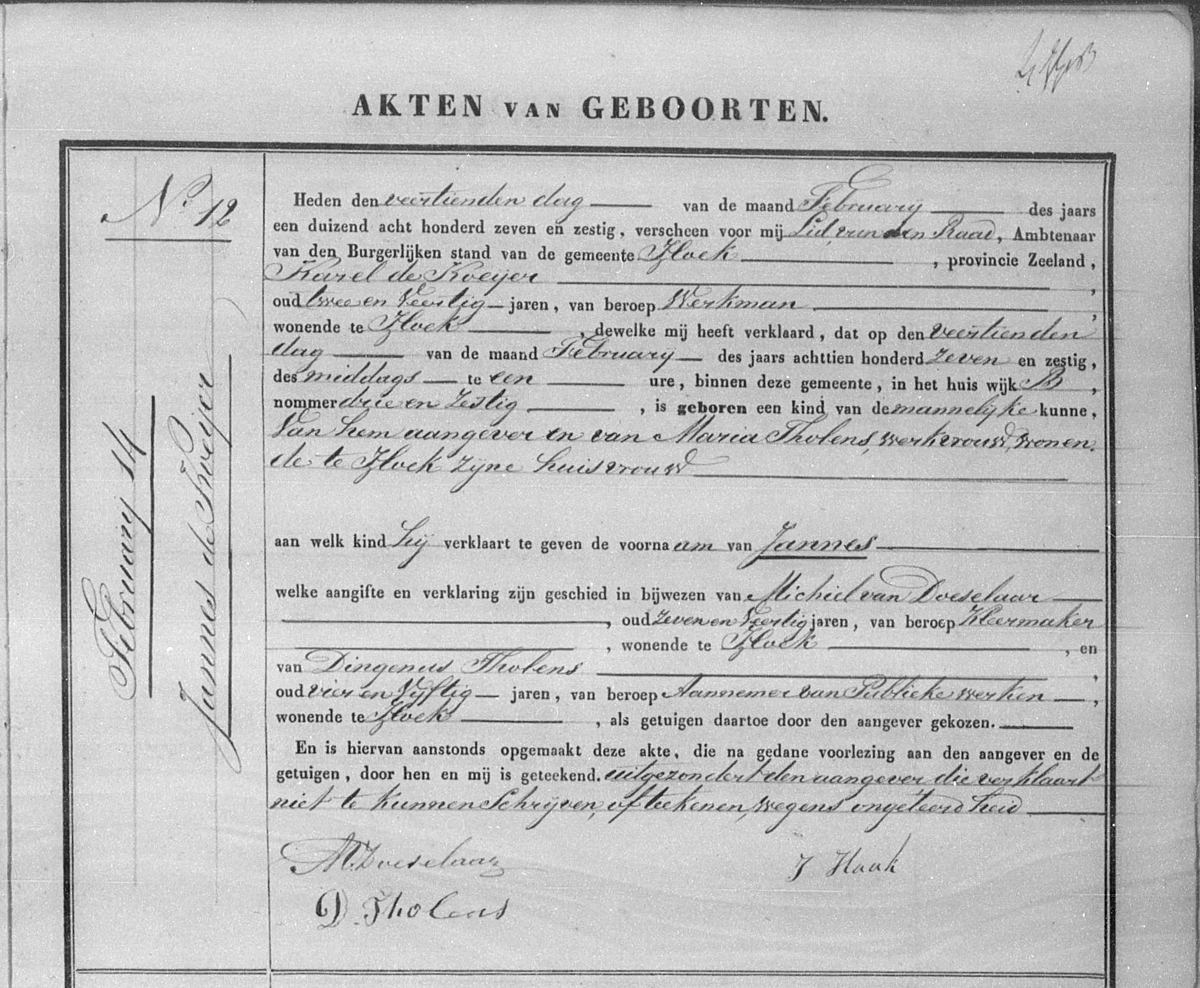 AKTEN VAN GEBOORTEN.
No 12
February 14
Jannes de Koeijer
Heden den veertienden dag van de maand February des jaars
een duizend acht honderd zeven en zestig, verscheen voor mij Lid van den Raad, Ambtenaar
van den Burgerlijken stand van de gemeente Hoek, provincie Zeeland,
Karel de Koeijer,
oud twee en Veertig jaren, van beroep Werkman,
wonende te Hoek, dewelke mij heeft verklaard, dat op den veertienden
dag van de maand February des jaars achttien honderd zeven en zestig,
des middags te een ure, binnen deze gemeente, in het huis wijk B,
nommer drie en Zestig, is geboren een kind van de mannelijke kunne,
Van hem aangever en van Maria Tholens, werkvrouw, wonen.
de te Hoek zijne huisvrouw
aan welk kind hij verklaart te geven de voorna am van Jannes
welke aangifte en verklaring zijn geschied in bijwezen van Michiel van Doeselaar
, oud Zeven en Veertig jaren, van beroep Kleermaker
, wonende te Hoek, en
van Dingenus Tholens,
oud vier en Vyftig jaren, van beroep Aannemer van Publieke werken,
wonende te Hoek, als getuigen daartoe door den aangever gekozen.
En is hiervan aanstonds opgemaakt deze akte, die na gedane voorlezing aan den aangever en de
getuigen, door hen en mij is geteekend. uitgezondert den aangever die verklaart
niet te kunnen Schrijven, of teekenen, wegens ongeleerdheid
M. Doeselaar
J Haak
D. Tholens